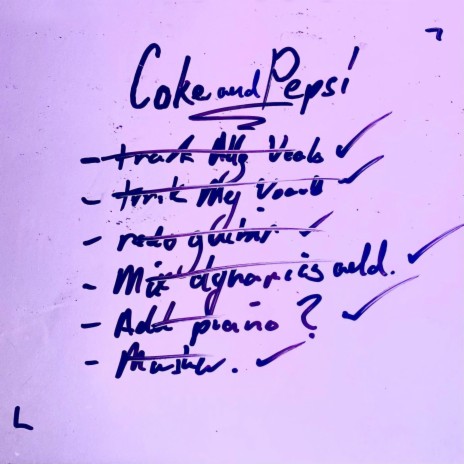 Coke and Pepsi
- track Ally Vocals ✓
- track My Vocals ✓
- redo guitar ✓
- Mix dynamics ✓
- Add piano? ✓
- Master. ✓